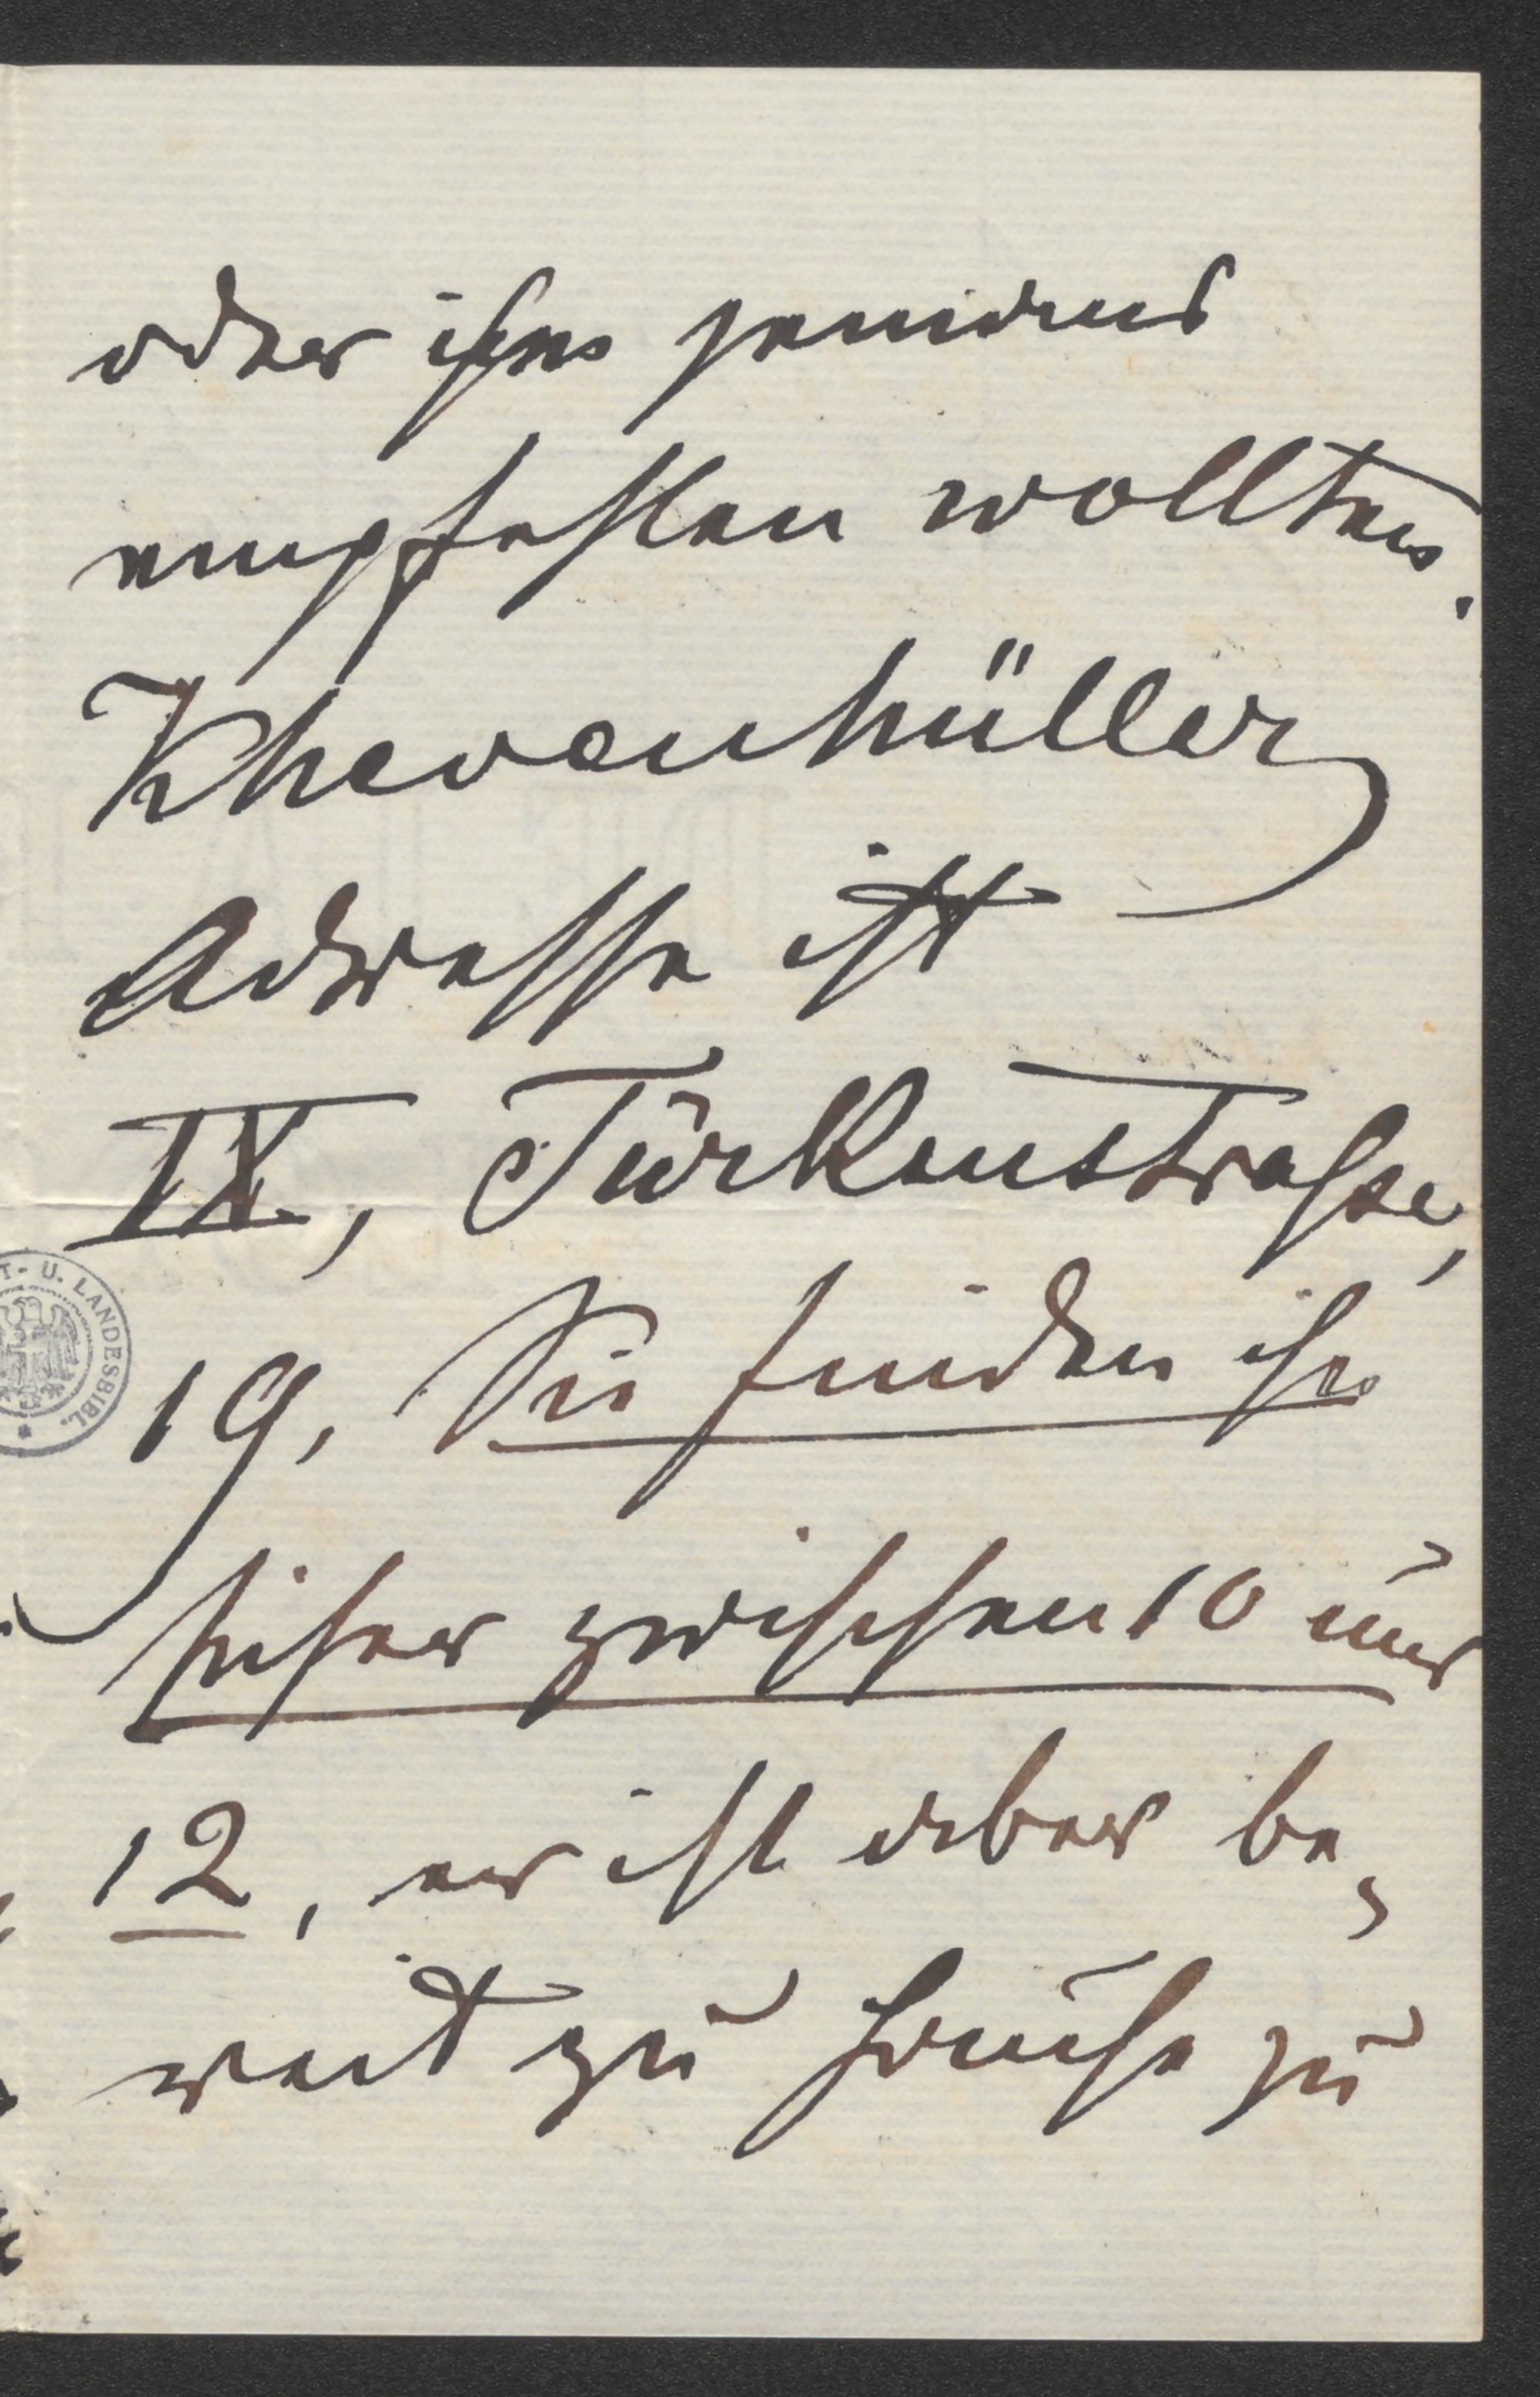 oder ihm jemand
empfehlen wollten.
Khevenhüller
Adresse ist
IX, Türkenstrasse,
19, Sie finden ihn
sicher zwischen 10 und
12, er ist aber be-
reit zu Hause zu
T- U. LANDESBIBL.